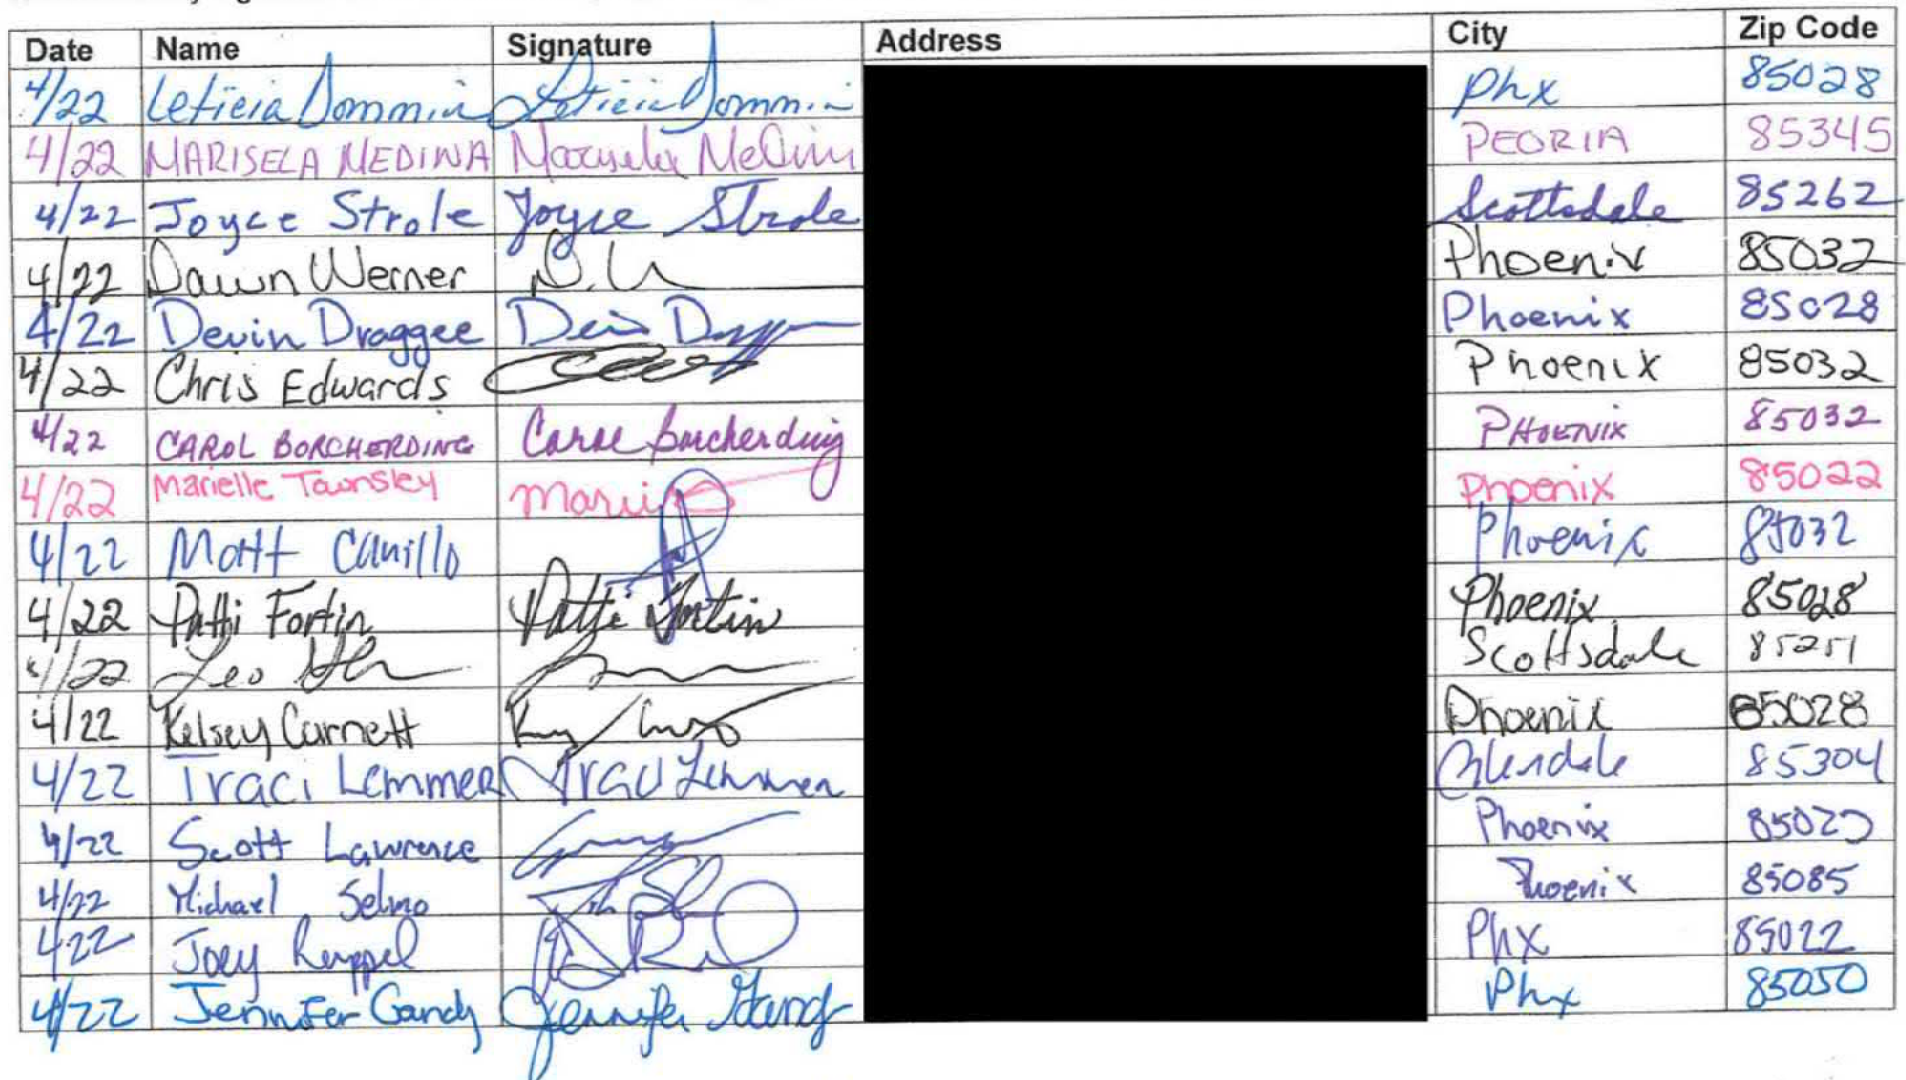 Date Name Signature Address City Zip Code
4/22 Leticia Dommin Leticia Dommin Phx 85028
4/22 MARISELA MEDINA Marisela Medina PEORIA 85345
4/22 Joyce Strole Joyce Strole Scottsdale 85262
4/22 Dawn Werner D.W Phoenix 85032
4/22 Devin Draggee Phoenix 85028
4/22 Chris Edwards Phoenix 85032
4/22 CAROL BORCHERDING Carol Borcherding PHOENIX 85032
4/22 Marielle Townsley Phoenix 85022
4/22 Matt Phoenix 85032
4/22 Patti Fortin Patti Fortin Phoenix 85028
4/22 Leo Scottsdale 85251
4/22 Kelsey Carnett Phoenix 85028
4/22 Traci Lemmer Traci Lemmer Glendale 85304
4/22 Scott Lawrence Phoenix
4/22 Michael Selmo Phoenix 85085
4/22 Joey Phx 85022
4/22 Jennifer Gandy Jennifer Gandy Phx 85050